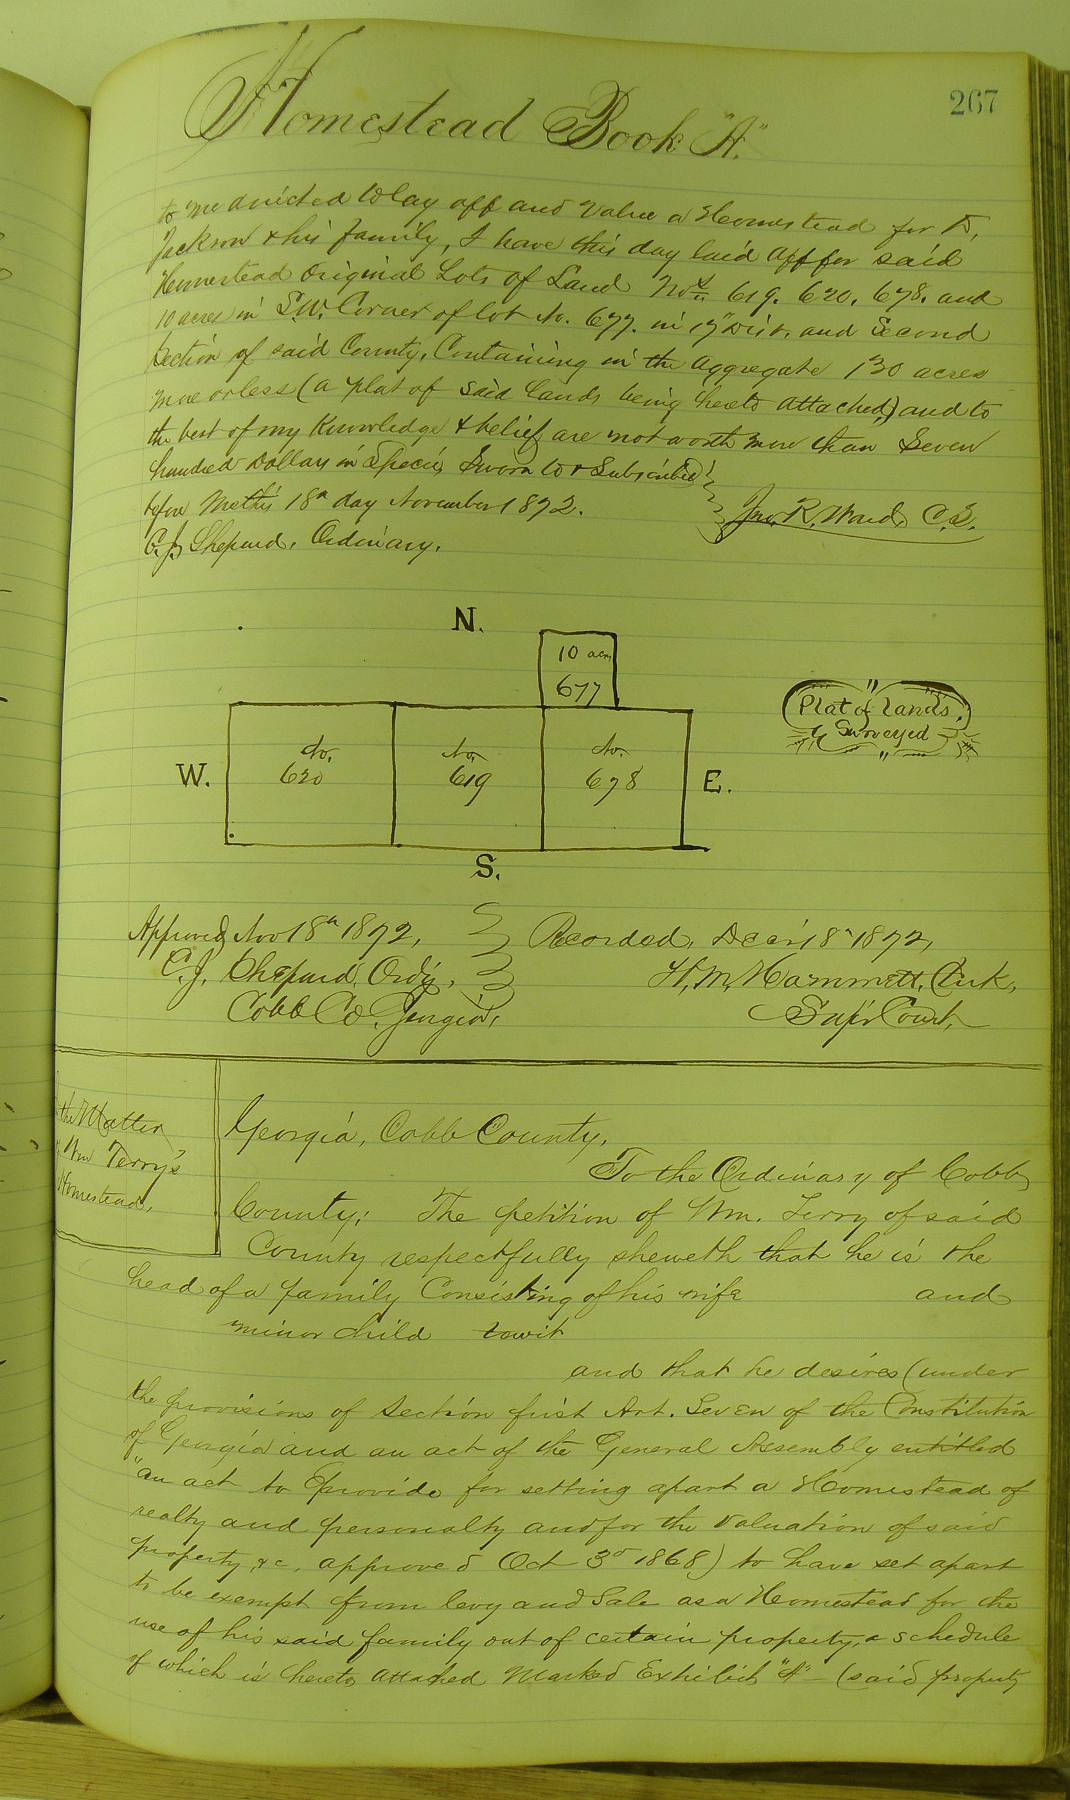 267
Homestead Book "A."
to me directed to lay off and value a Homestead for D,
Jackson & his family, I have this day laid off for said
Homestead Original Lots of Land Nos 619. 620. 678. and
10 acres in S.W. Corner of lot No. 677. in 19" Dist, and Second
Section of said County, Containing in the aggregate 130 acres
more or less (a plat of said lands being hereto attached,) and to
the best of my Knowledge & belief are not worth more than Seven
hundred Dollars in Specie, Sworn to & Subscribed
before Me this 18th day November 1872.
Jno. R. Ward, C.S.
C.J. Shepard, Ordinary,
N.
10 acr,
677
Plat of lands,
Surveyed
W.
No.
620
No.
619
No.
678
E.
S.
Approved Nov 18th 1872,
C.J. Shepard, Ordy,
Cobb Co. Georgia,
Recorded, Decr 18th 1872,
H, M, Hammett, Clerk,
Supr Court,
the Matter
Wm Terry's
Homestead,
Georgia, Cobb County,
To the Ordinary of Cobb
County; The petition of Wm. Terry of said
County respectfully sheweth that he is the
head of a family Consisting of his wife and
minor child towit
and that he desires (under
the provisions of Section first Art. Seven of the Constitution
of Georgia and an act of the General Assembly entitled
"an act to Provide for setting apart a Homestead of
realty and personalty and for the Valuation of said
property, &c, approved Oct 3d 1868) to have set apart
to be exempt from levy and Sale as a Homestead for the
use of his said family out of certain property, a schedule
of which is hereto attached Marked Exhibit "A" - (said property